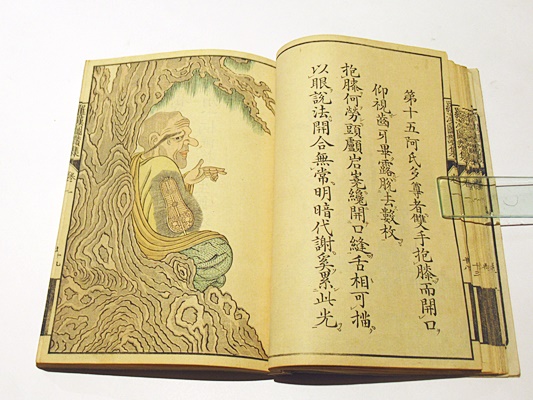 第十五阿氏多尊者雙手抱膝而開口
仰視齒牙畢露脫去數枚
抱膝何勞頭顱岩纔開口縫舌相可擋
以眼說法開合無常明暗代謝奚累此光